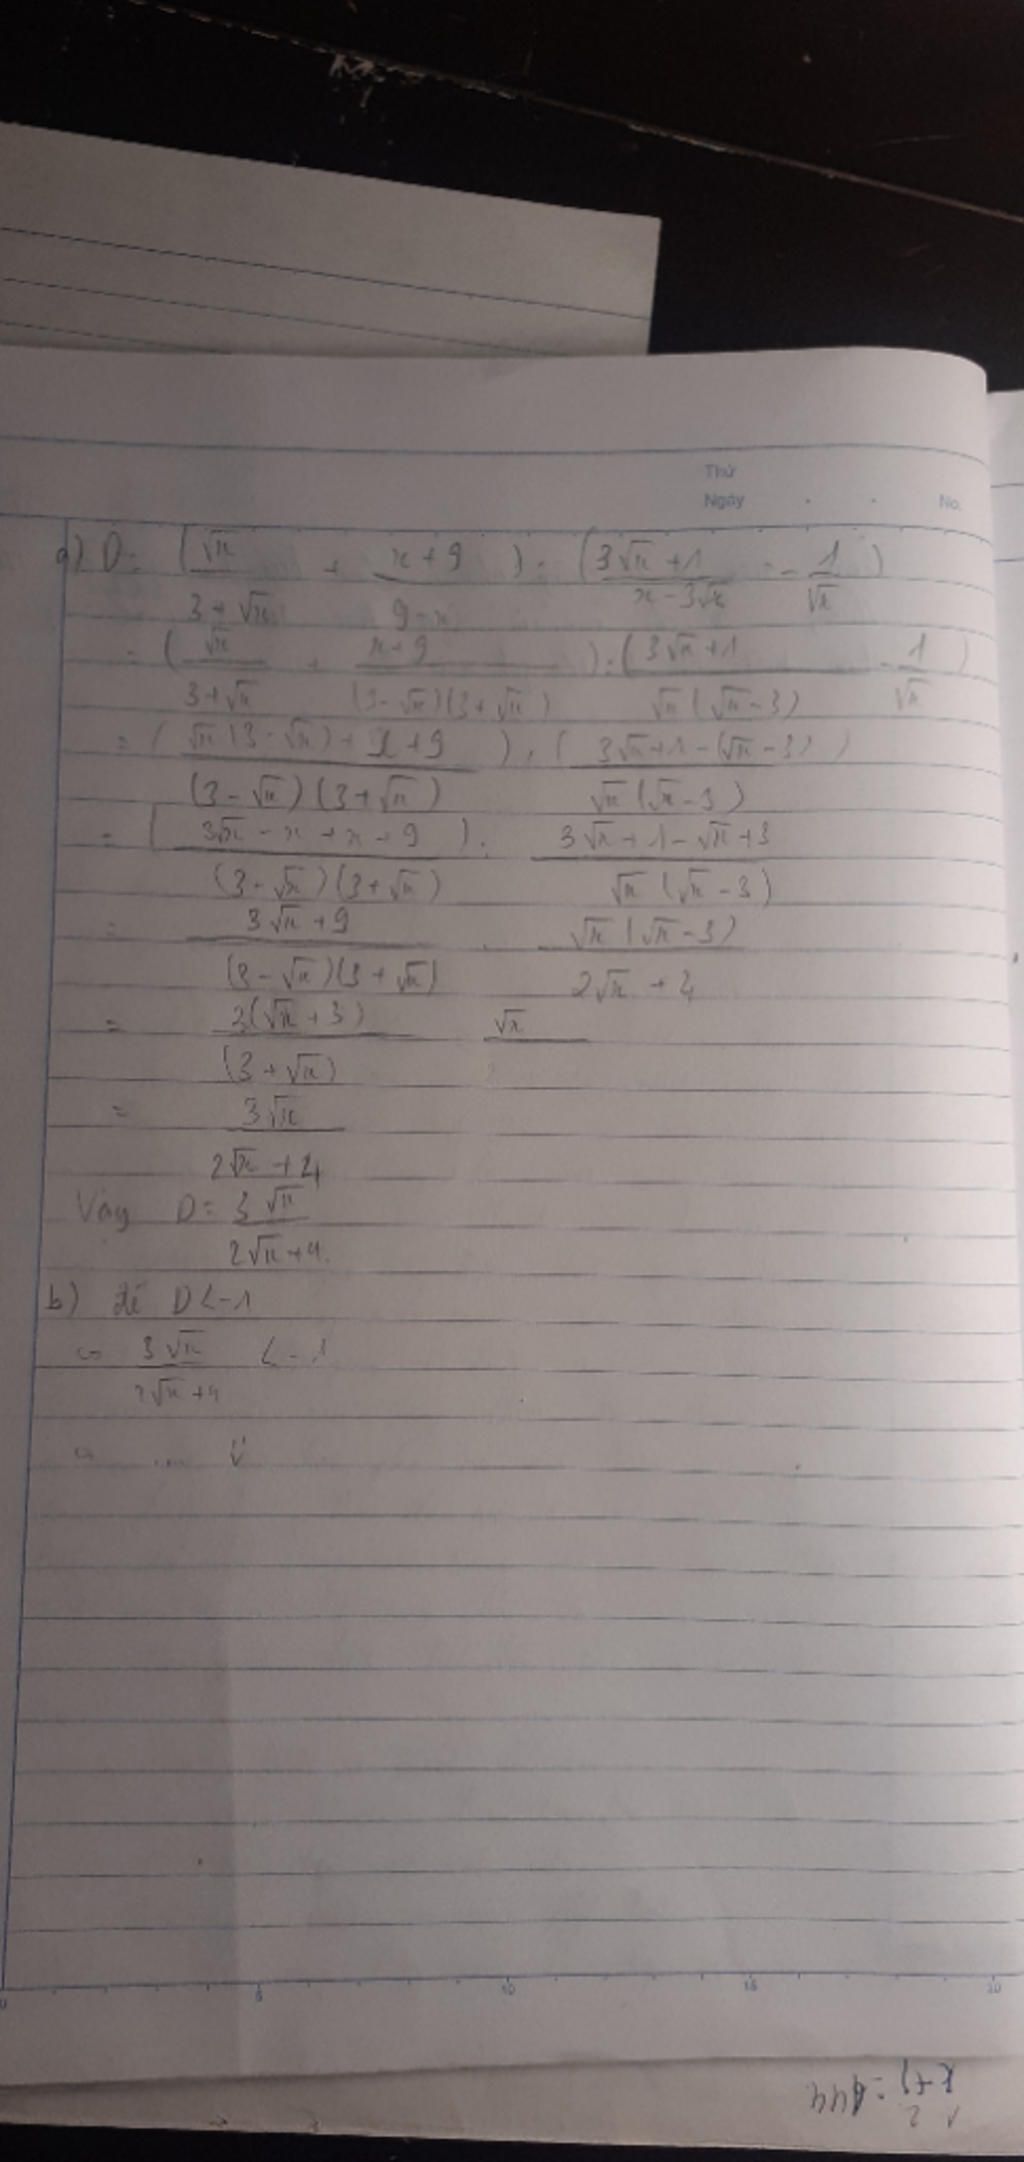 Thứ
Ngày . . No.
a) D = (√x / (3 + √x) + (x + 9) / (9 - x)) : ((3√x + 1) / (x - 3√x) - 1 / √x)
= (√x / (3 + √x) + (x + 9) / ((3 - √x)(3 + √x))) : ((3√x + 1) / (√x(√x - 3)) - 1 / √x)
= (√x(3 - √x) + x + 9) / ((3 - √x)(3 + √x)) : (3√x + 1 - (√x - 3)) / (√x(√x - 3))
= (3√x - x + x + 9) / ((3 - √x)(3 + √x)) : (3√x + 1 - √x + 3) / (√x(√x - 3))
= (3√x + 9) / ((3 - √x)(3 + √x)) . √x(√x - 3) / (2√x + 4)
= 3(√x + 3) / (3 + √x) √x
= 3√x / (2√x + 4)
Vậy D = 3√x / (2√x + 4)
b) để D < -1
⇔ 3√x / (2√x + 4) < -1
...
0 5 10 15 20
= 144